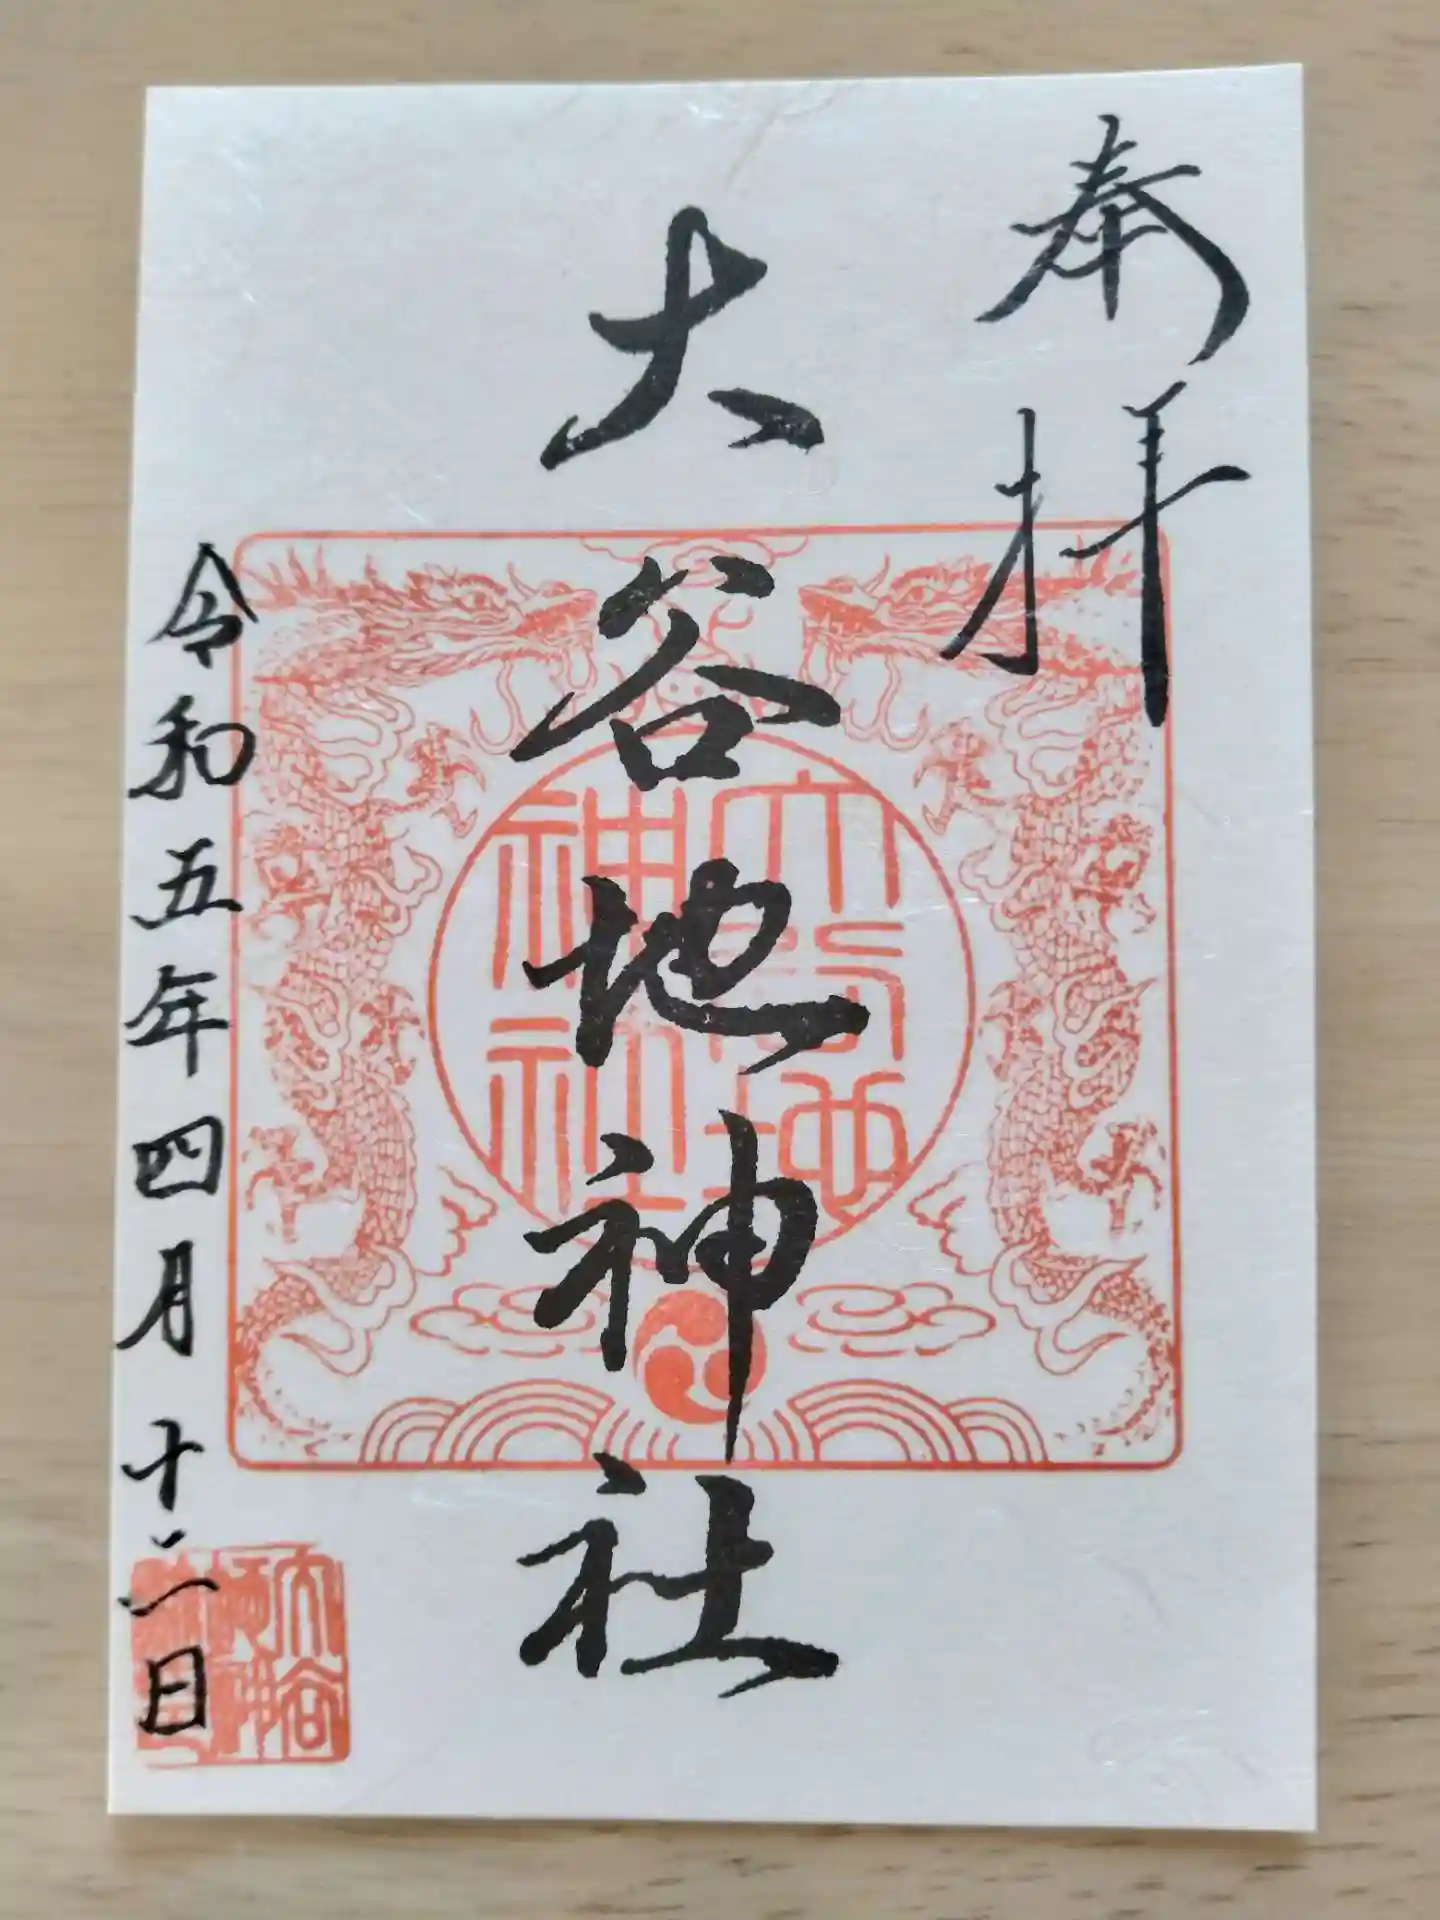 奉拝
大谷地神社
令和五年四月十二日
大谷地
神社
大谷
地神